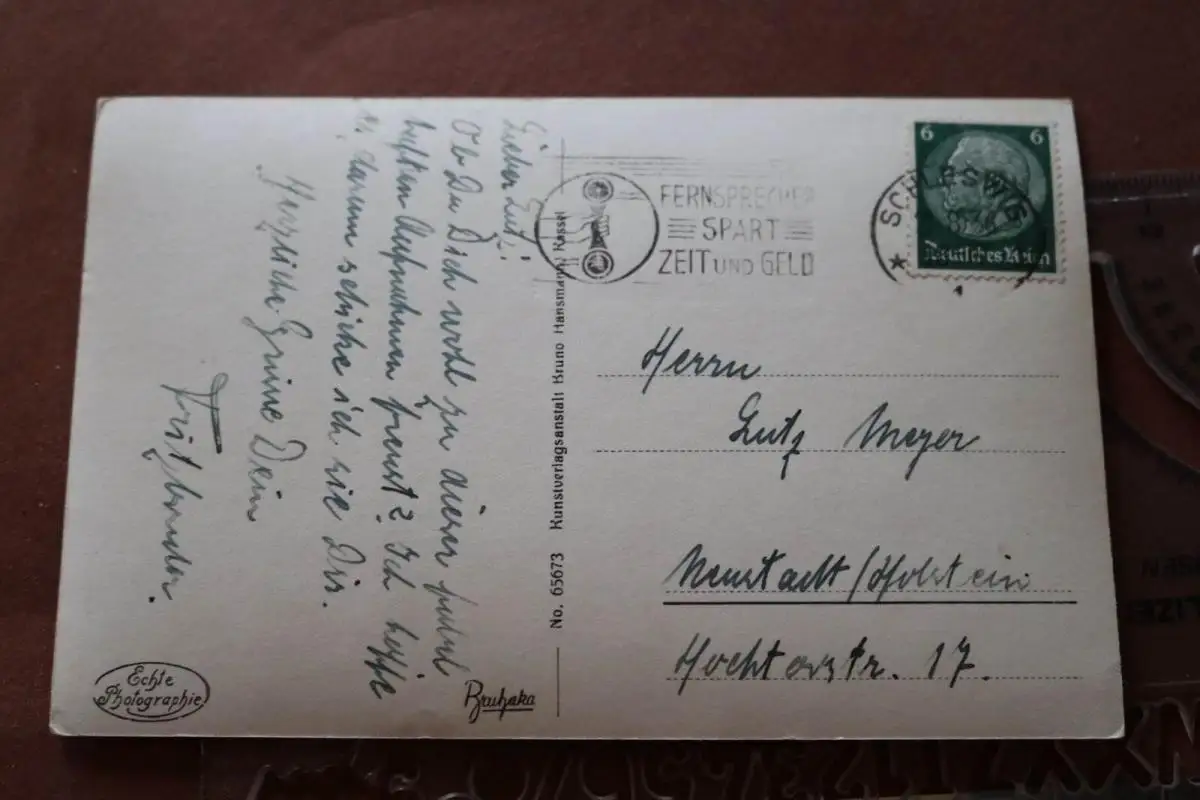 Lieber Lutz!
Ob Du Dich wohl zu dieser
Aufnahmen freust? Ich hoffe
es darum schicke ich sie Dir.
Herzliche Grüsse Dein
Fritz
Echte
Photographie
Bruhaka
No. 65673 Kunstverlagsanstalt Bruno Hansmann Kassel
FERNSPRECHER
SPART
ZEIT UND GELD
SCHLESWIG
6 6
Deutsches Reich
Herrn
Lutz Meyer
Neustadt/Holstein
17.